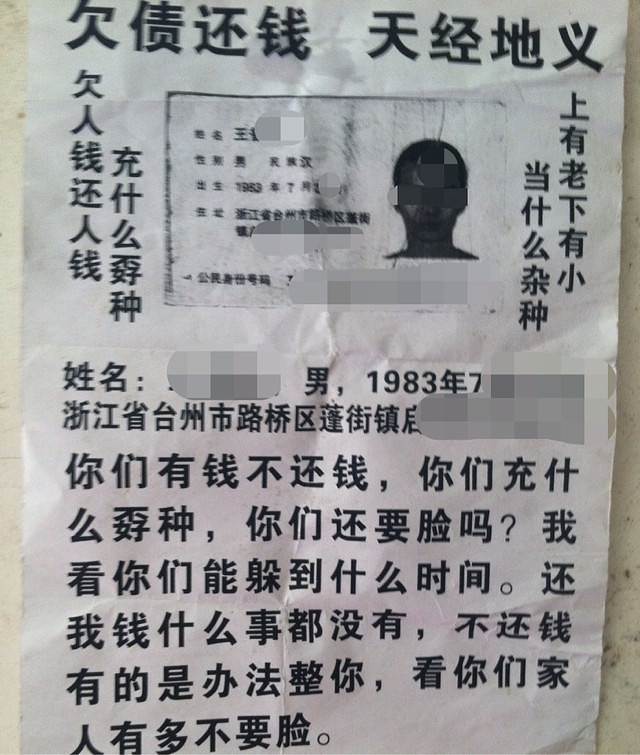 欠债还钱 天经地义
欠人钱还人钱
充什么孬种
上有老下有小
当什么杂种
姓名 王
性别 男 民族 汉
出生 1983 年 7 月
住址 浙江省台州市路桥区蓬街
镇
公民身份号码
姓名: 男,1983年7
浙江省台州市路桥区蓬街镇
你们有钱不还钱,你们充什
么孬种,你们还要脸吗?我
看你们能躲到什么时间。还
我钱什么事都没有,不还钱
有的是办法整你,看你们家
人有多不要脸。